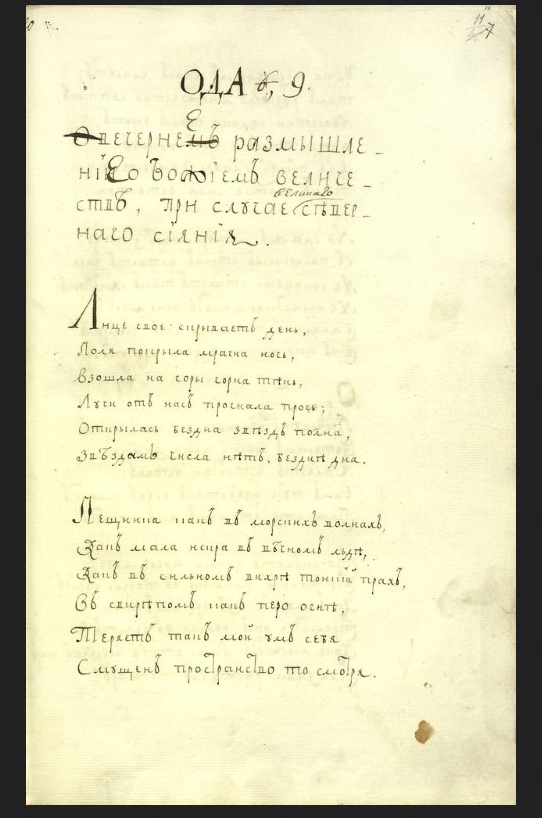 ОДА 9.
вечернее размышле-
ніе о Божіемъ величе-
ствѣ, при случае великаго сѣвер-
наго сіянія.
Лице свое скрываетъ день,
Поля покрыла мрачна ночь,
Взошла на горы чорна тѣнь,
Лучи отъ насъ прогнала прочь;
Открылась бездна звѣздъ полна,
Звѣздамъ числа нѣтъ, безднѣ дна.
Пещинка какъ въ морскихъ волнахъ,
Какъ мала искра въ вѣчномъ льдѣ,
Какъ въ сильномъ вихрѣ тонкій прахъ,
Въ свирѣпомъ какъ перо огнѣ,
Теряетъ такъ мой умъ себя
Смущенъ пространство то смотря.